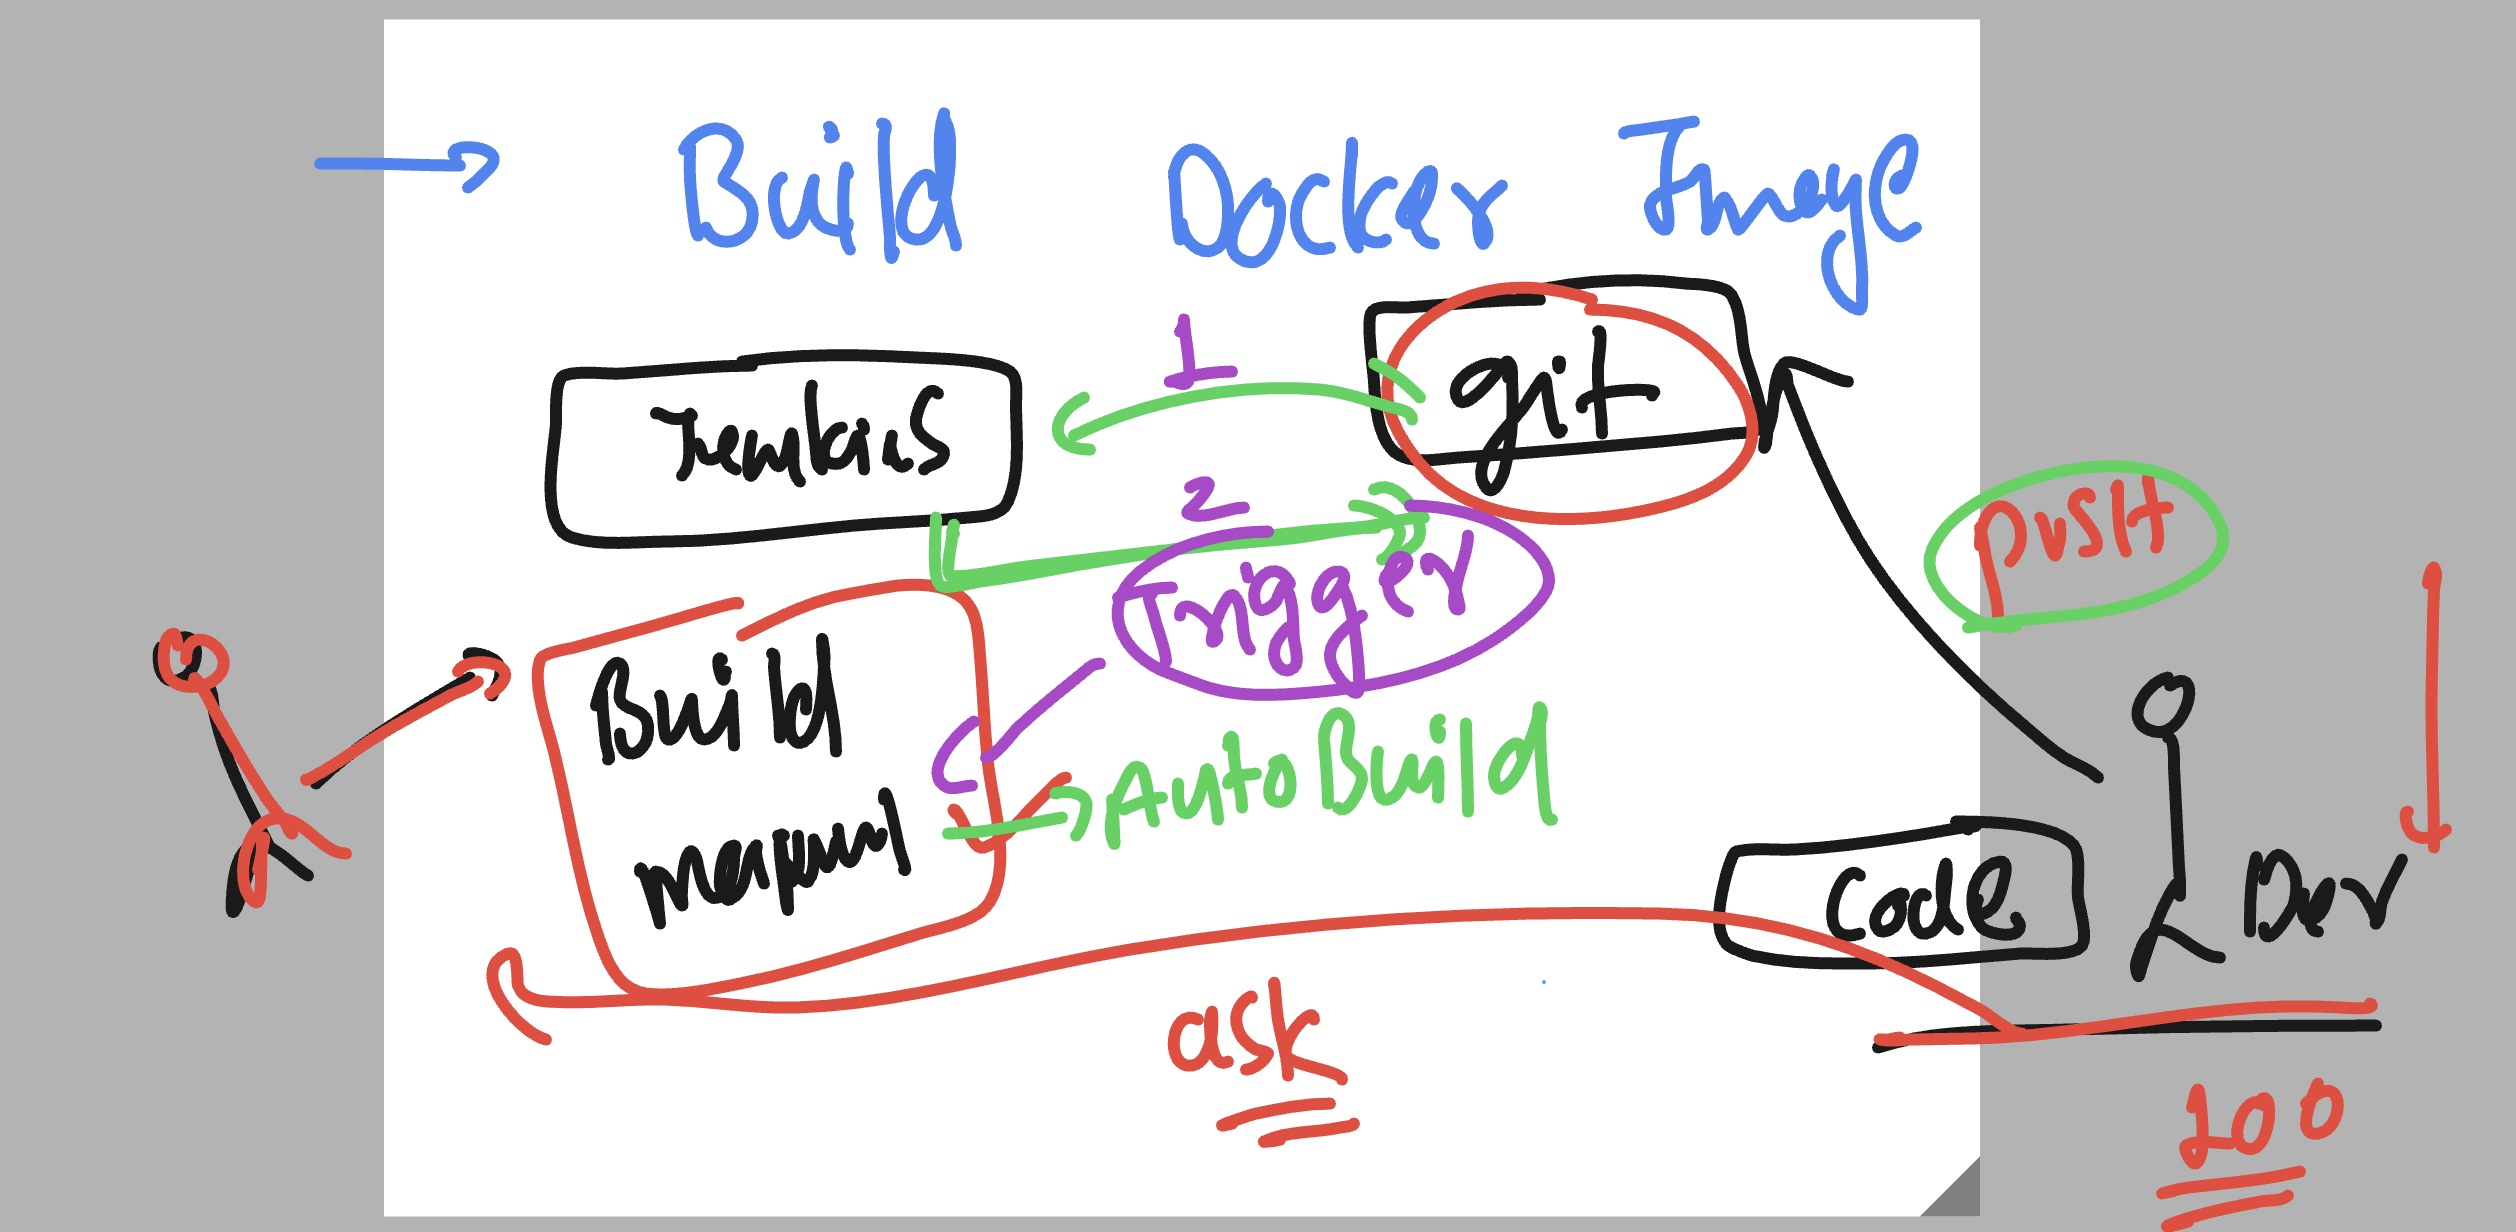 Build Docker Image
1
git
Jenkins
2
push
Trigger
Build
manual
Auto Build
Code
Dev
ask
100